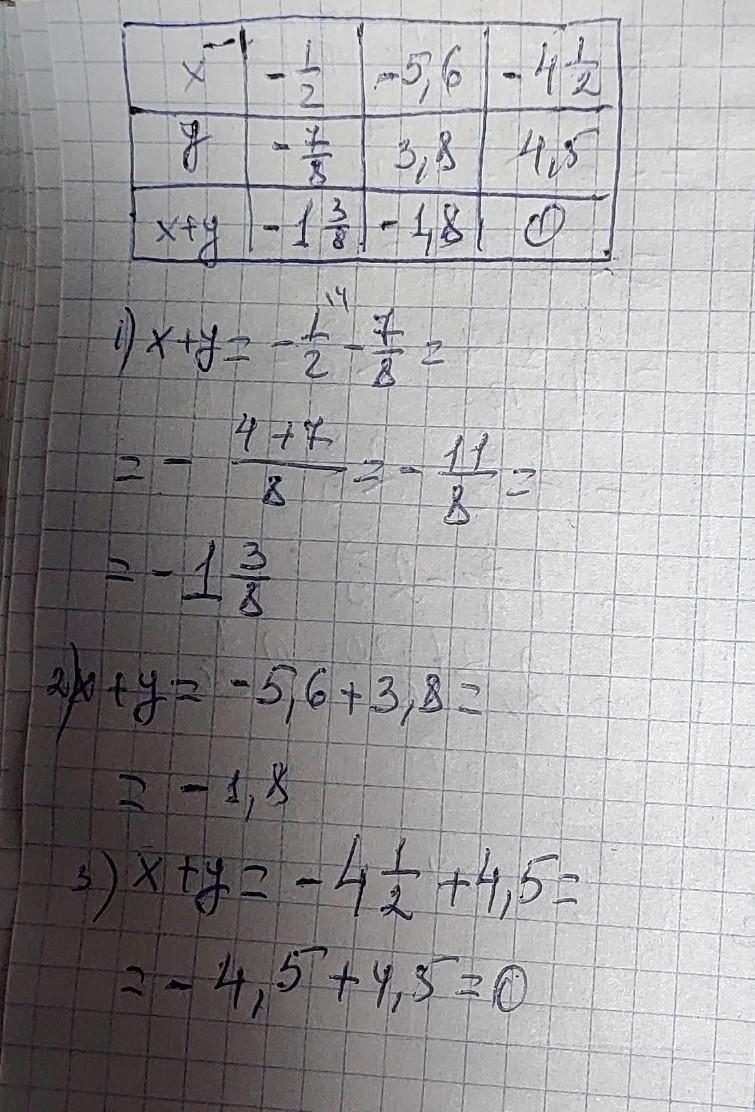 x | -1/2 | -5,6 | -4 1/2
y | -7/8 | 3,8 | 4,5
x+y | -1 3/8 | -1,8 | 0
1) x+y = -1/2 \4 - 7/8 =
= - (4+7)/8 = - 11/8 =
= -1 3/8
2) x+y = -5,6+3,8 =
= -1,8
3) x+y = -4 1/2 +4,5 =
= -4,5+4,5 = 0